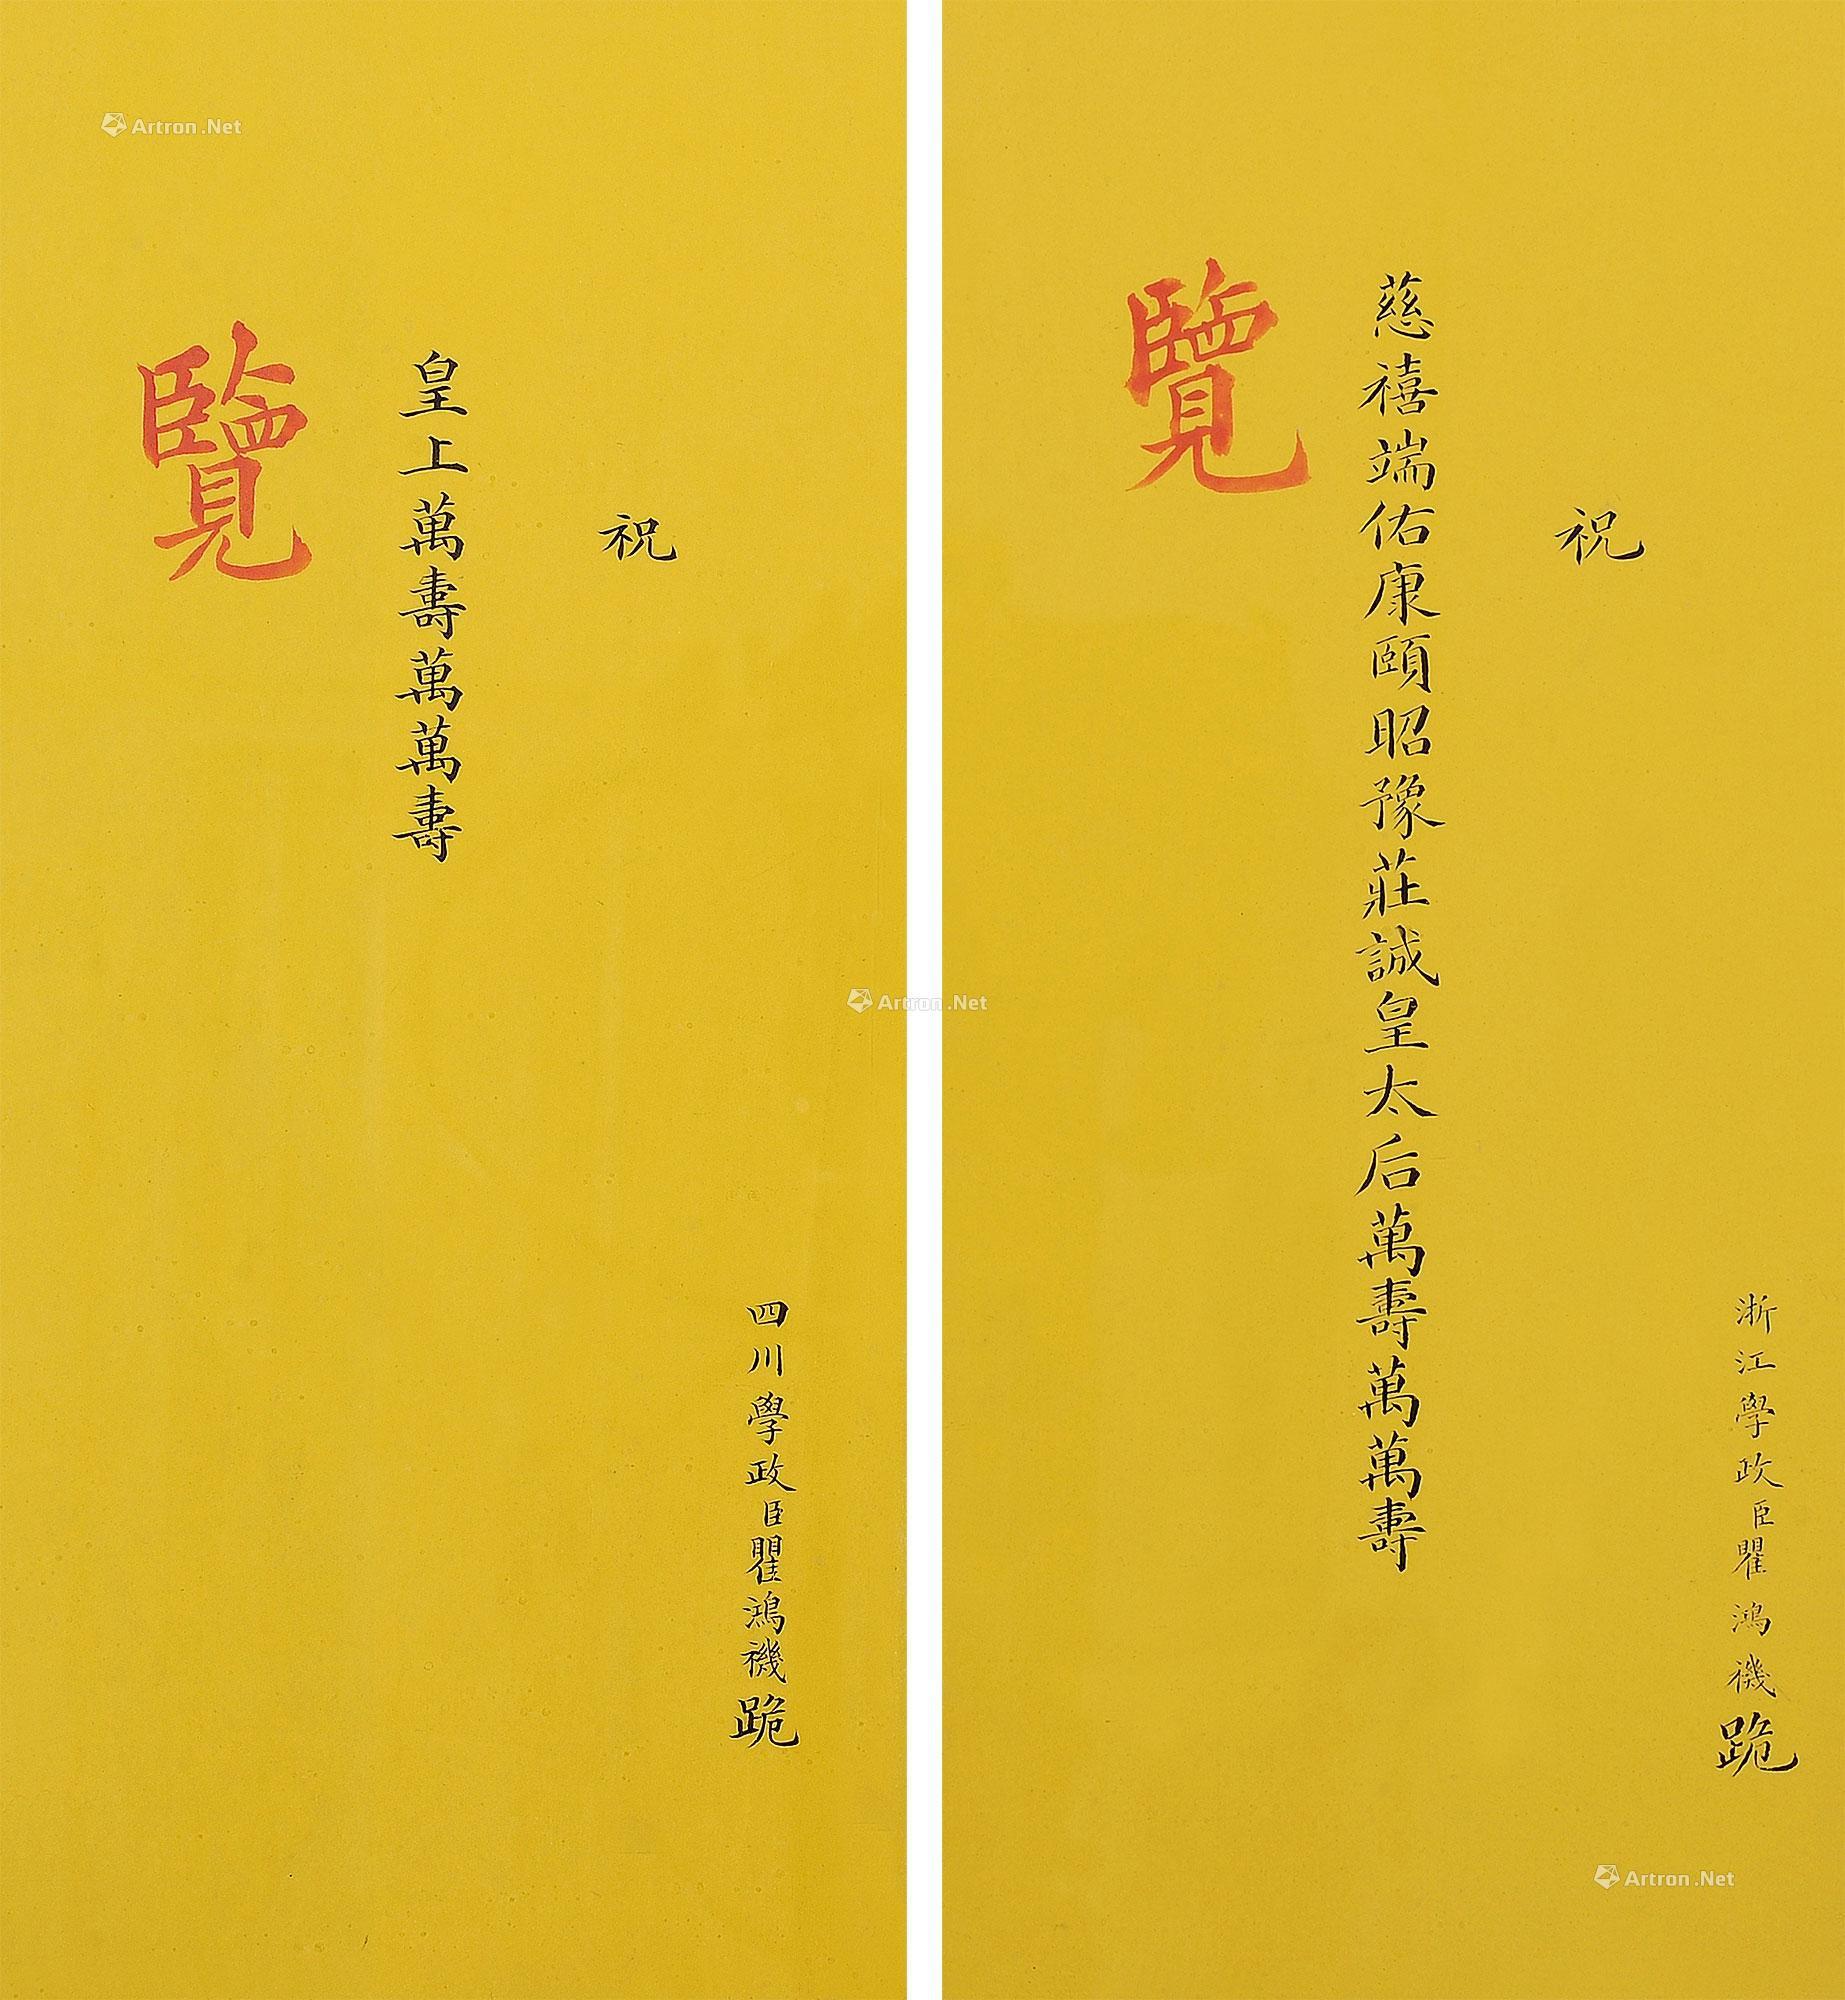 浙江學政臣瞿鴻禨跪
祝
慈禧端佑康頤昭豫莊誠皇太后萬壽萬萬壽
覽
四川學政臣瞿鴻禨跪
祝
皇上萬壽萬萬壽
覽
Artron.Net
Artron.Net
Artron.Net